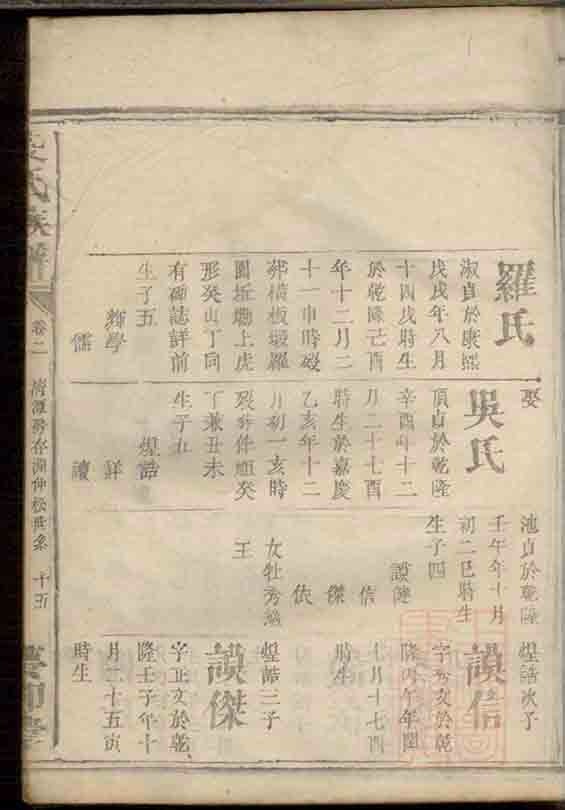 羅氏
淑貞於康熙
戊戌年八月
十四戌時生
於乾隆己酉
年十二月二
十一申時歿
葬橫板塅羅
圍坵墈上虎
形癸山丁同
有碑誌詳前
生子五
輝學
儒
娶
吳氏
頂貞於乾隆
辛酉年十二
月二十七酉
時生於嘉慶
乙亥年十二
月初一亥時
歿
丁兼丑未
生子五
煌誥
詳
讀
池貞於乾隆
壬午年十月
初二巳時生
生子四
謨健
信
傑
依
女牡秀適
王
煌誥次子
謨信
字秀文於乾
隆丙午年閏
七月十七酉
時生
煌誥三子
謨傑
字正文於乾
隆壬子年十
月二十五寅
時生
氏族譜
卷二
十五